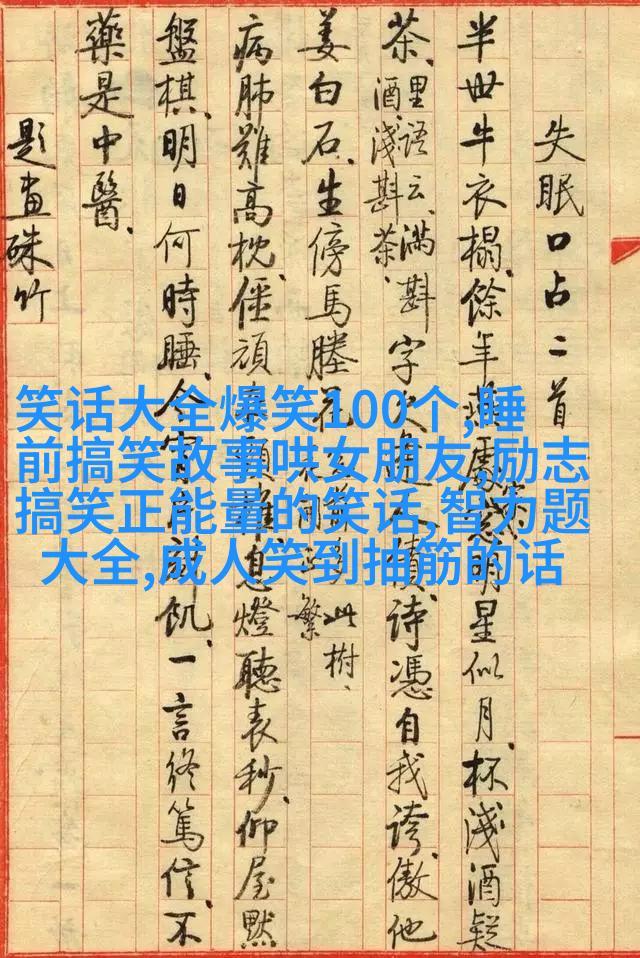 失眠口占二首
半世牛衣榻、餘年燕 明星似月、杯淺酒疑
茶、里語云、滿斟酒、淺斟茶、字欠 人債、詩憑自我誇、傲他
姜白石、生傍馬塍花、 此樹、繁
病肺難高枕、僵頑 息燈聽表秒、仰屋默
盤棋、明日何時睡、今宵 飢、一言終篤信、不
藥是中醫、
題畫硃竹
笑话大全爆笑100个,睡
前搞笑故事哄女朋友,励志
搞笑正能量的笑话,智力题
大全,成人笑到抽筋的话